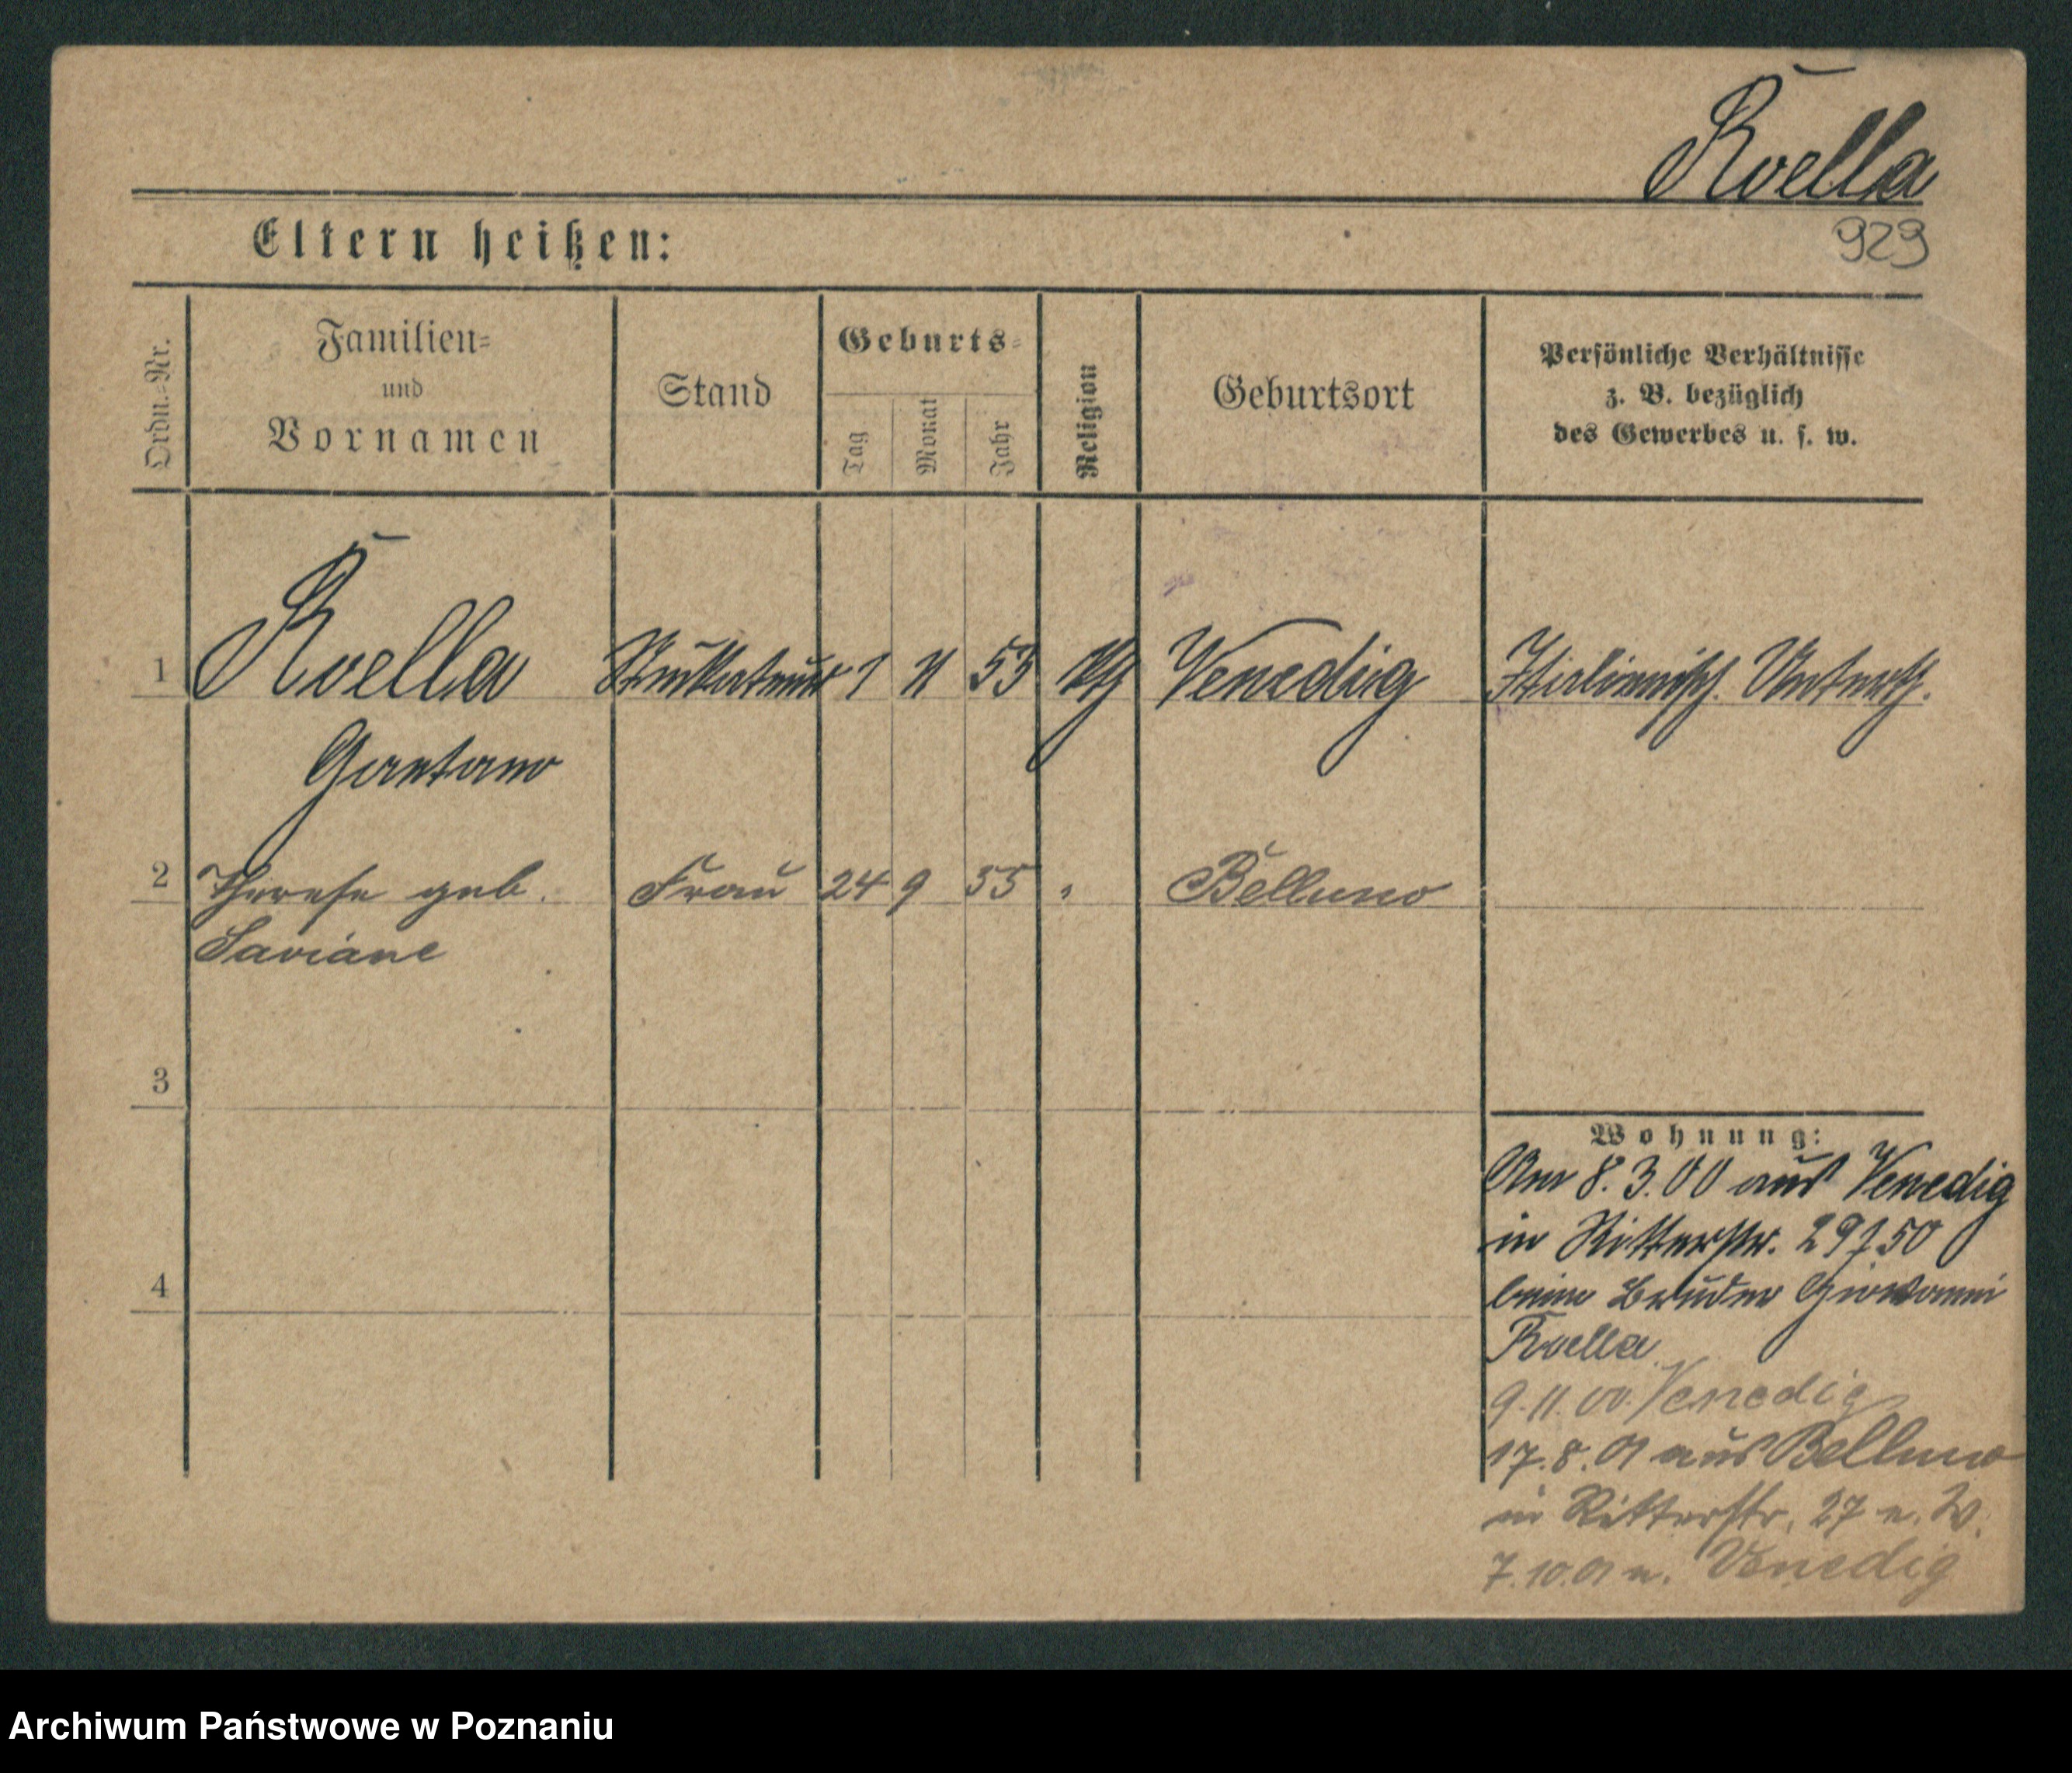 Roella
929
Eltern heißen:
Ordn.-Nr.
Familien-
und
Vornamen
Stand
Geburts-
Tag
Monat
Jahr
Religion
Geburtsort
Persönliche Verhältnisse
z. B. bezüglich
des Gewerbes u. s. w.
1 Roella Stukkateur 1 11 53 kth Venedig Italienisch. Untertch.
Gaetano
2 Therese geb. Frau 24 9 55 " Belluno
Saviane
3
4
Wohnung:
Am 8.3.00 aus Venedig
in Ritterstr. 29/50
beim Bruder Giovanni
Roella
9.11.00. Venedig
17.8.01 aus Belluno
in Ritterstr. 27 n. W.
7.10.01 n. Venedig
Archiwum Państwowe w Poznaniu